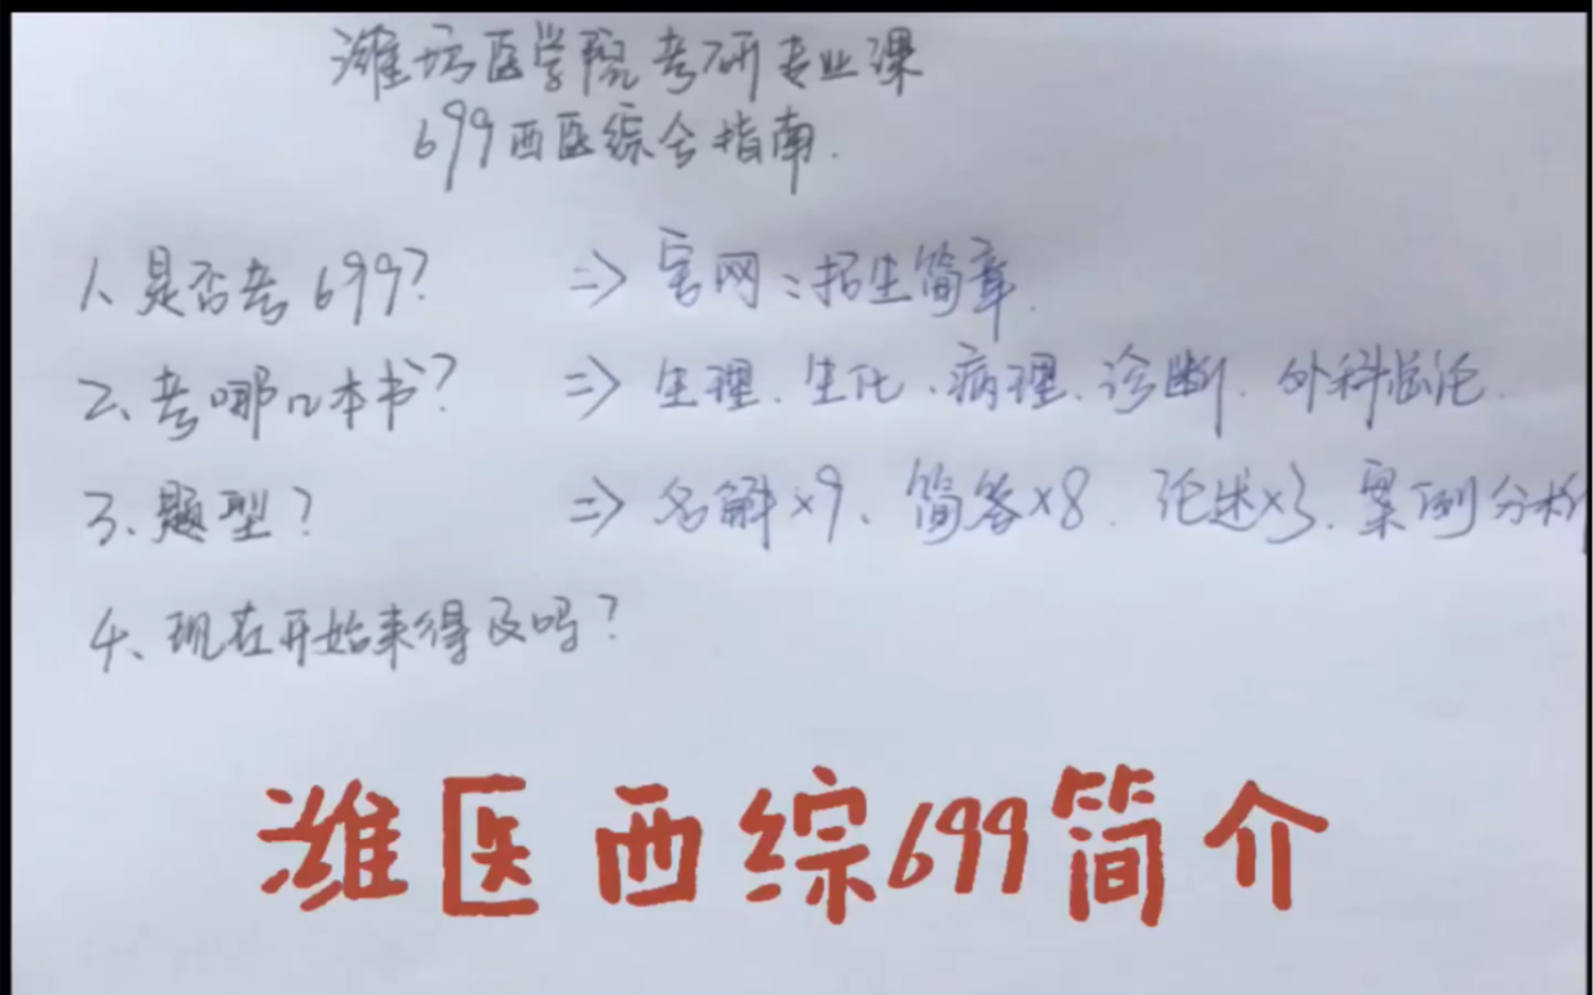 潍坊医学院考研专业课
699西医综合指南.
1、是否考699? => 官网:招生简章.
2、考哪几本书? => 生理.生化.病理.诊断.外科总论.
3、题型? => 名解×9、简答×8.论述×3.案例分析
4、现在开始来得及吗?
潍医西综699简介